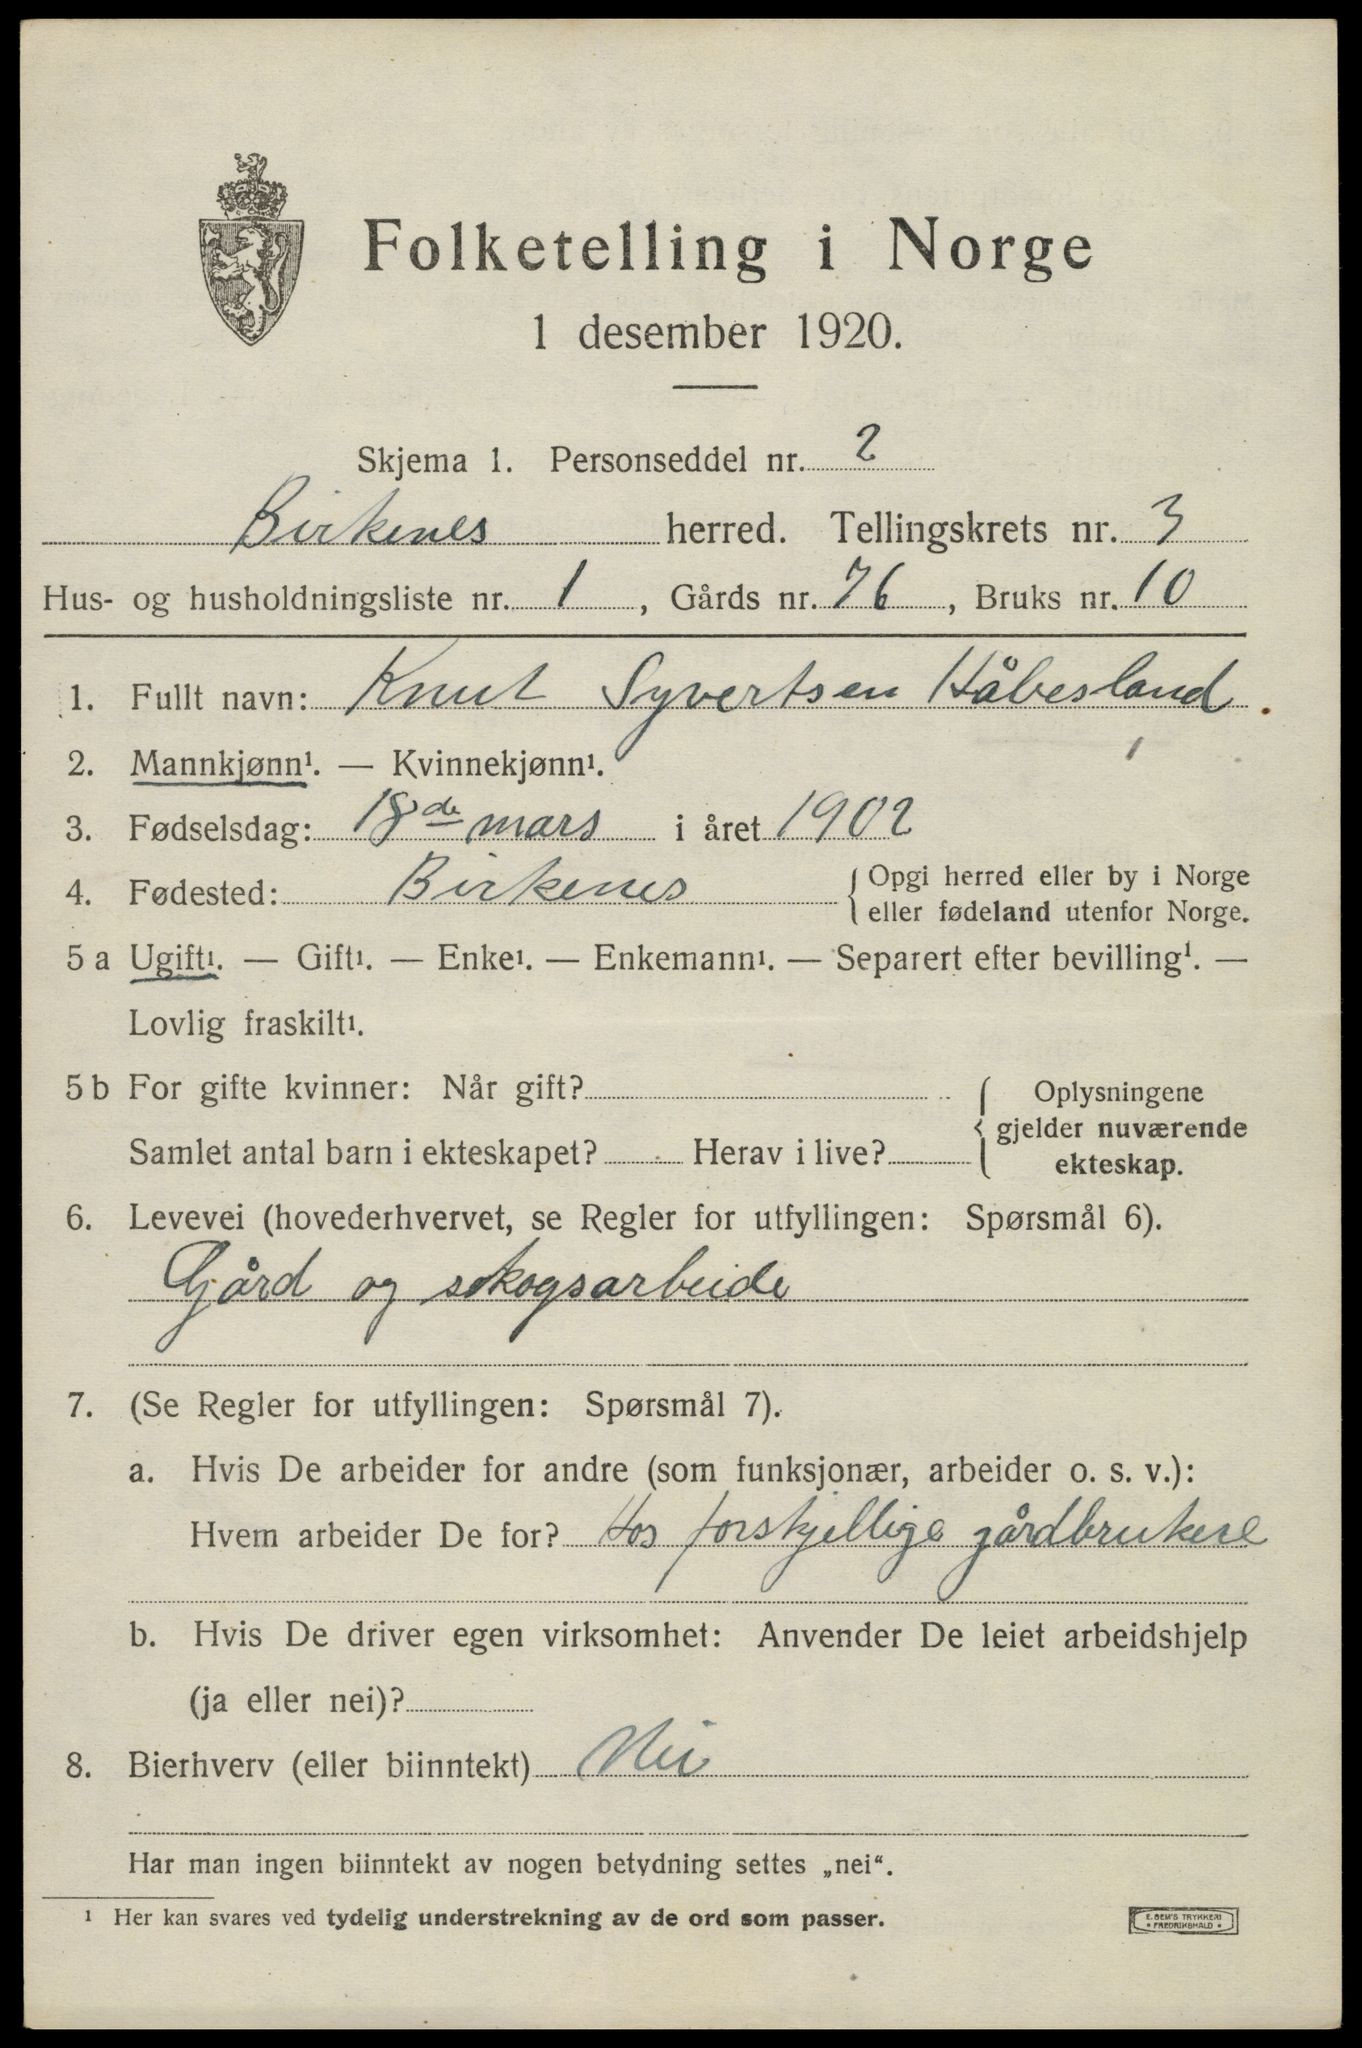 Folketelling i Norge
1 desember 1920.
Skjema 1. Personseddel nr. 2
Birkenes herred. Tellingskrets nr. 3
Hus- og husholdningsliste nr. 1, Gårds nr. 76, Bruks nr. 10
1. Fullt navn: Knut Syvertsen Håbesland.
2. Mannkjønn¹. — Kvinnekjønn¹.
3. Fødselsdag: 18de mars i året 1902
4. Fødested: Birkenes { Opgi herred eller by i Norge
eller fødeland utenfor Norge.
5 a Ugift¹. — Gift¹. — Enke¹. — Enkemann¹. — Separert efter bevilling¹. —
Lovlig fraskilt¹.
5 b For gifte kvinner: Når gift? { Oplysningene
gjelder nuværende
Samlet antal barn i ekteskapet? Herav i live?
ekteskap.
6. Levevei (hovederhvervet, se Regler for utfyllingen: Spørsmål 6).
Gård og skogsarbeide
7. (Se Regler for utfyllingen: Spørsmål 7).
a. Hvis De arbeider for andre (som funksjonær, arbeider o. s. v.):
Hvem arbeider De for? Hos forskjellige gårdbrukere
b. Hvis De driver egen virksomhet: Anvender De leiet arbeidshjelp
(ja eller nei)?
8. Bierhverv (eller biinntekt) Nei
Har man ingen biinntekt av nogen betydning settes „nei“.
¹ Her kan svares ved tydelig understrekning av de ord som passer.
E. SEM'S TRYKKERI
• FREDRIKSHALD •